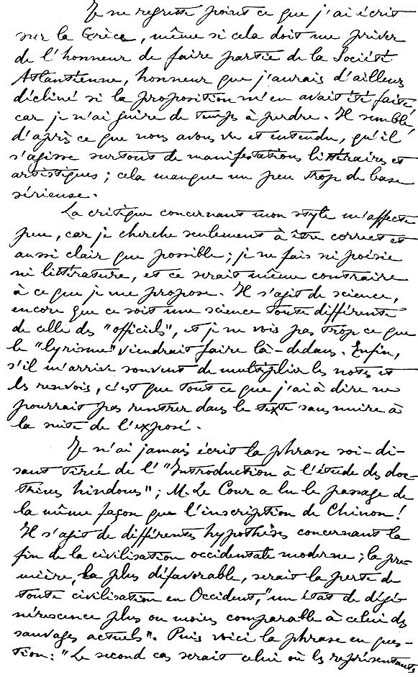 Je ne regrette point ce que j'ai écrit
sur la Grèce, même si cela doit me priver
de l'honneur de faire partie de la Société
Atlantéenne, honneur que j'aurais d'ailleurs
décliné si la proposition m'en avait été faite,
car je n'ai guère de temps à perdre. Il semble,
d'après ce que nous avons vu et entendu, qu'il
s'agisse surtout de manifestations littéraires et
artistiques ; cela manque un peu trop de base
sérieuse.
La critique concernant mon style m'affecte
peu, car je cherche seulement à être correct et
aussi clair que possible ; je ne fais ni poésie
ni littérature, et ce serait même contraire
à ce que je me propose. Il s'agit de science,
encore que ce soit une science toute différente
de celle des "officiels", et je ne vois pas trop ce que
le "lyrisme" viendrait faire là-dedans. Enfin,
s'il m'arrive souvent de multiplier les notes et
les renvois, c'est que tout ce que j'ai à dire ne
pourrait pas rentrer dans le texte sans nuire à
la suite de l'exposé.
Je n'ai jamais écrit la phrase soi-di-
sant tirée de l'"Introduction à l'étude des doc-
trines hindoues" ; M. Le Cour a lu le passage de
la même façon que l'inscription de Chinon !
Il s'agit de différentes hypothèses concernant la
fin de la civilisation occidentale moderne ; la pre-
mière, la plus défavorable, serait la perte de
toute civilisation en Occident, "un état de dégé-
nérescence plus ou moins comparable à celui des
sauvages actuels". Puis voici la phrase en ques-
tion : "Le second cas serait celui où les représentants